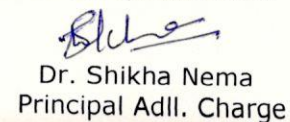 Dr. Shikha Nema
Principal Adll. Charge